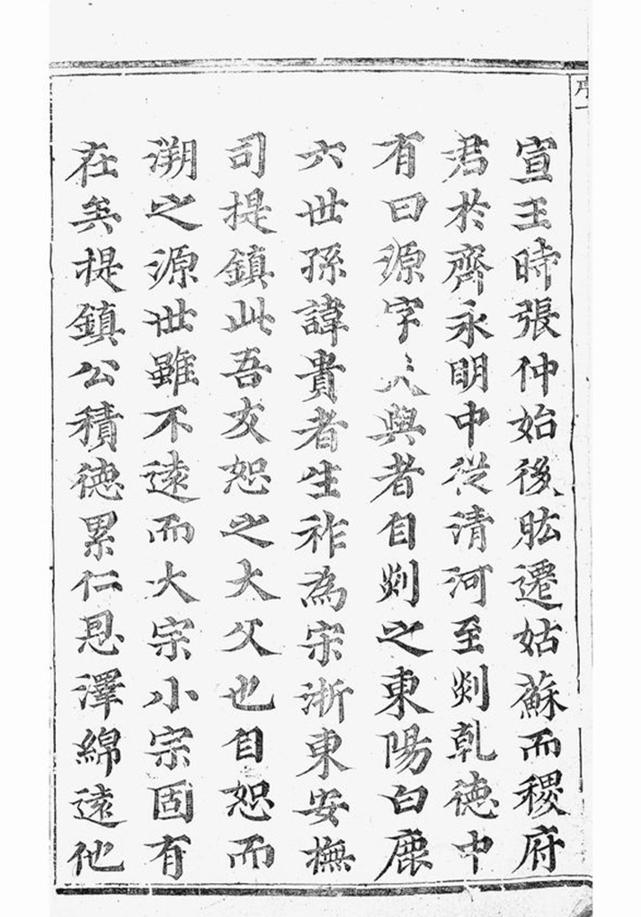 序一
宣王時張仲始後肱遷姑蘇而稷府
君於齊永明中従清河至剡乾德中
有曰源字與者自剡之東陽白鹿
六世孫諱貴者生祚為宋浙東安撫
司提鎮此吾友恕之大父也自恕而
溯之源世雖不遠而大宗小宗固有
在矣提鎮公積德累仁恩澤綿遠他